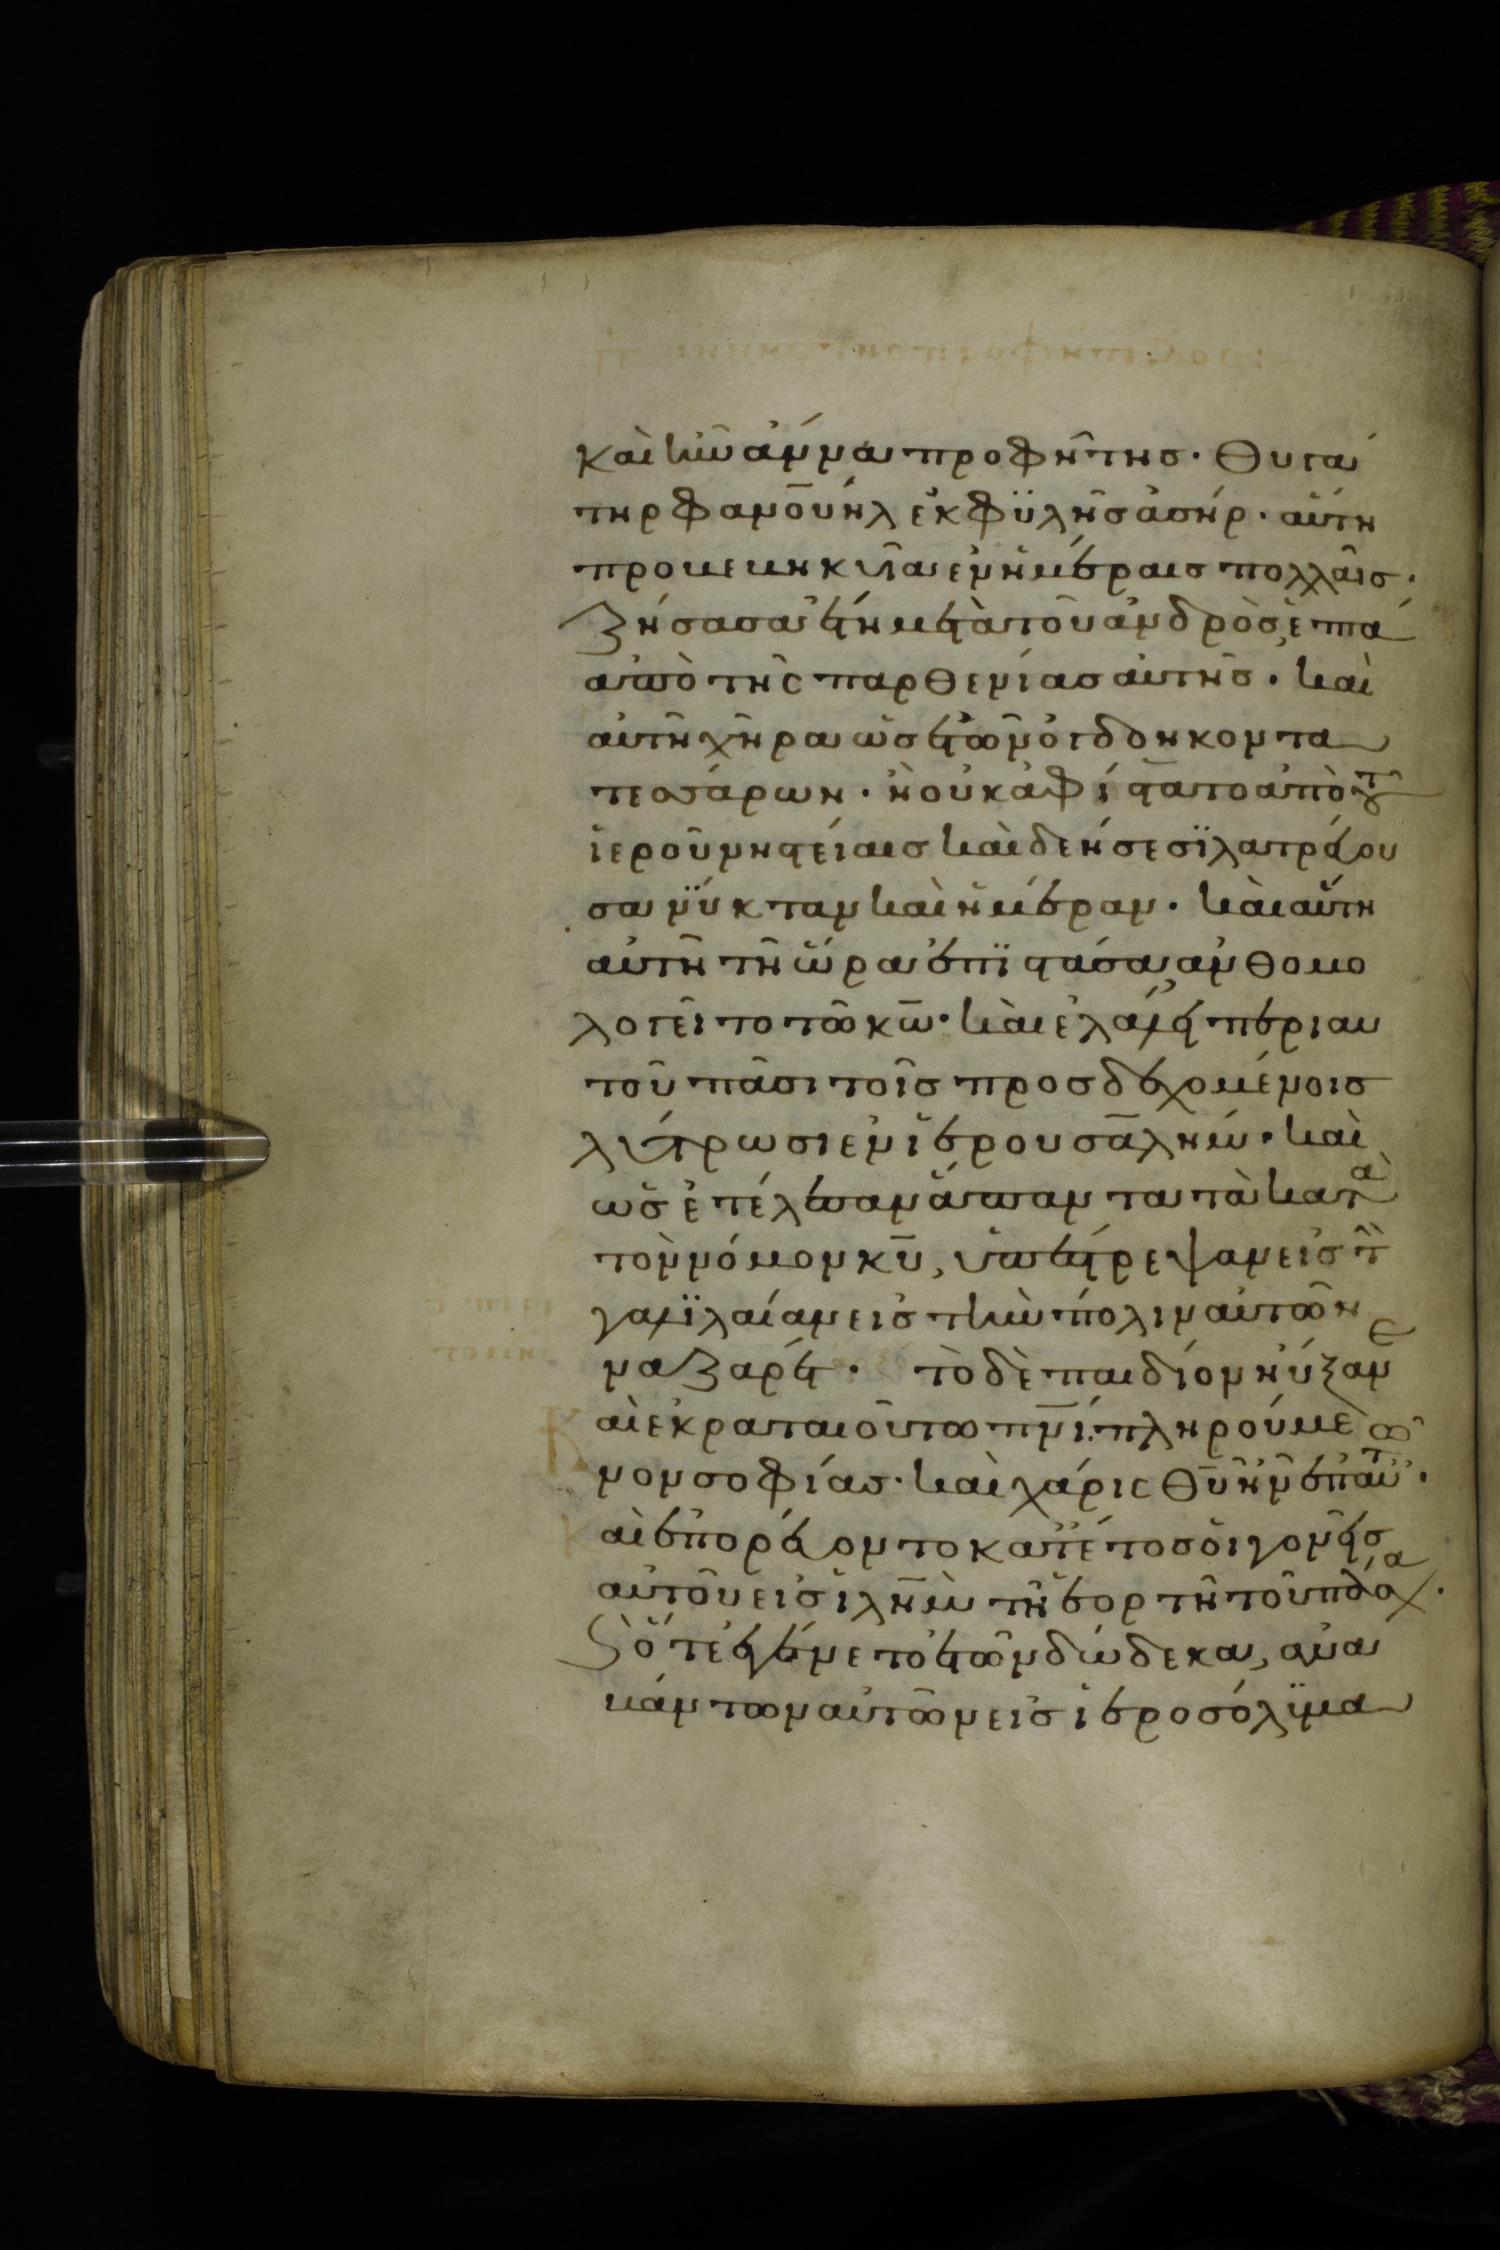 καὶ ἦν ἄννα προφῆτης· θυγά
τηρ φανουήλ ἐκ φϋλῆσ ἀσήρ· αὕτη
προβεβηκυῖα ἐν ἡμέραισ πολλαῖσ·
ζήσασα ἔτη μετὰ τοῦ ἀνδρὸσ, ἑπτὰ
ἀπὸ τῆς παρθενίασ αὐτῆσ· καὶ
αὐτῆ χῆρα ὡσ ἐτῶν ὀγδοηκοντα
τεσσάρων· ἣ οὐκ ἀφίστατο ἀπὸ τοῦ
ἱεροῦ νηστείαισ καὶ δεήσεσϊ λατρεύου
σα νΰκταν καὶ ἡμέραν· καὶ αὕτη
αὐτῆ τῆ ὥρα ἐπϊστάσα, ἀνθομο
λογεῖτο τῶ κω· καὶ ἐλάλει περι αυ
τοῦ πᾶσι τοῖσ προσδεχομένοισ
λύτρωσι ἐν ἱερουσαλήμ· καὶ
ὡσ ἐτέλεσαν ἅπαν τα τὰ κατὰ
τὸν νόμον κυ, ὑπέστρεψαν εἰσ τὴν
γαλϊλαίαν εἰσ τὴν πόλιν αὐτῶν
ναζαρέτ· τὸ δὲ παιδίον ηὔξανε
αὶ ἐκραταιοῦτω πνι. πληρούμε
νον σοφίασ· καὶ χάρις θυ ἦν ἐπ αὐτῶ·
αὶ ἐπορεύοντο κατ ἔτοσ οἱ γονεῖσ
αὐτοῦ εἰσ ἱλημ τῆ ἑορτῆ τοῦ πάσχα·
καὶ ὅτε ἐγένετο ἐτῶν δώδεκα, ανα
βάντων αὐτῶν εἰσ ἱεροσόλϋμα